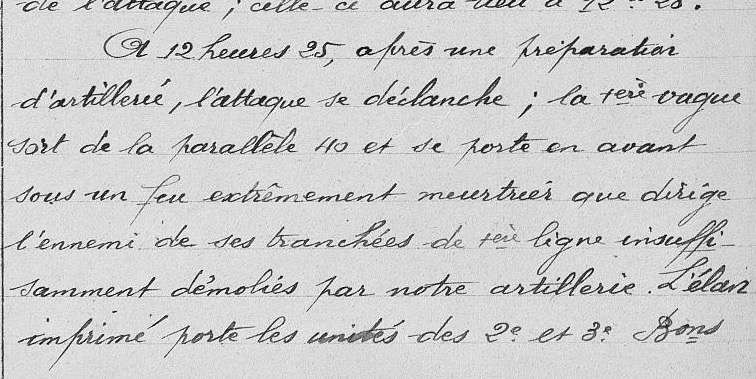 de l'attaque ; celle-ci aura lieu à 12h 25.
A 12 heures 25, après une préparation
d'artillerie, l'attaque se déclanche ; la 1ère vague
sort de la parallèle 40 et se porte en avant
sous un feu extrêmement meurtrier que dirige
l'ennemi de ses tranchées de 1ère ligne insuffi-
samment démolies par notre artillerie. L'élan
imprimé porte les unités des 2e et 3e Bons